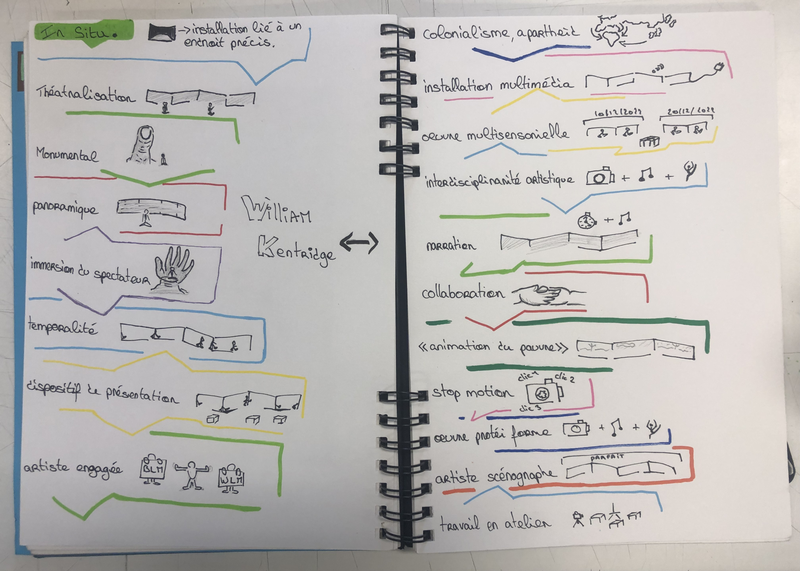 In Situ.
→ installation lié à un
endroit précis.
Théâtralisation
Monumental
panoramique
William
Kentridge
immersion du spectateur
temporalité
dispositif de présentation
artiste engagée
BLM
WLM
colonialisme, apartheit
installation multimédia
10/12/2022
20/12/2022
oeuvre multisensorielle
interdisciplinarité artistique
+ +
+
narration
collaboration
«animation du pauvre»
stop motion
clic 1
clic 2
clic 3
oeuvre protéi forme
+ +
PARFAIT
artiste scénographe
travail en atelier